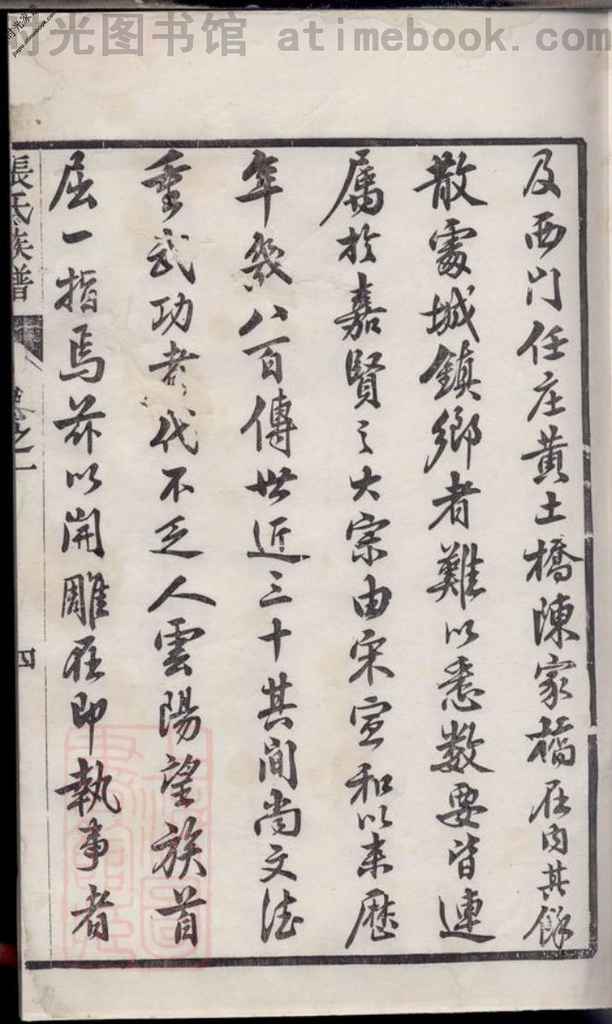 时光图书馆 - atimebook.com
及西门任庄黄土橋陳家橋在内其餘
散處城鎮鄉者難以悉數要皆連
属於嘉賢之大宗由宋宣和以来歷
年幾八百傳世近三十其间尚文德
重武功者代不乏人雲陽望族首
屈一指焉茲以開雕在即執事者
張氏族譜
卷之一
四